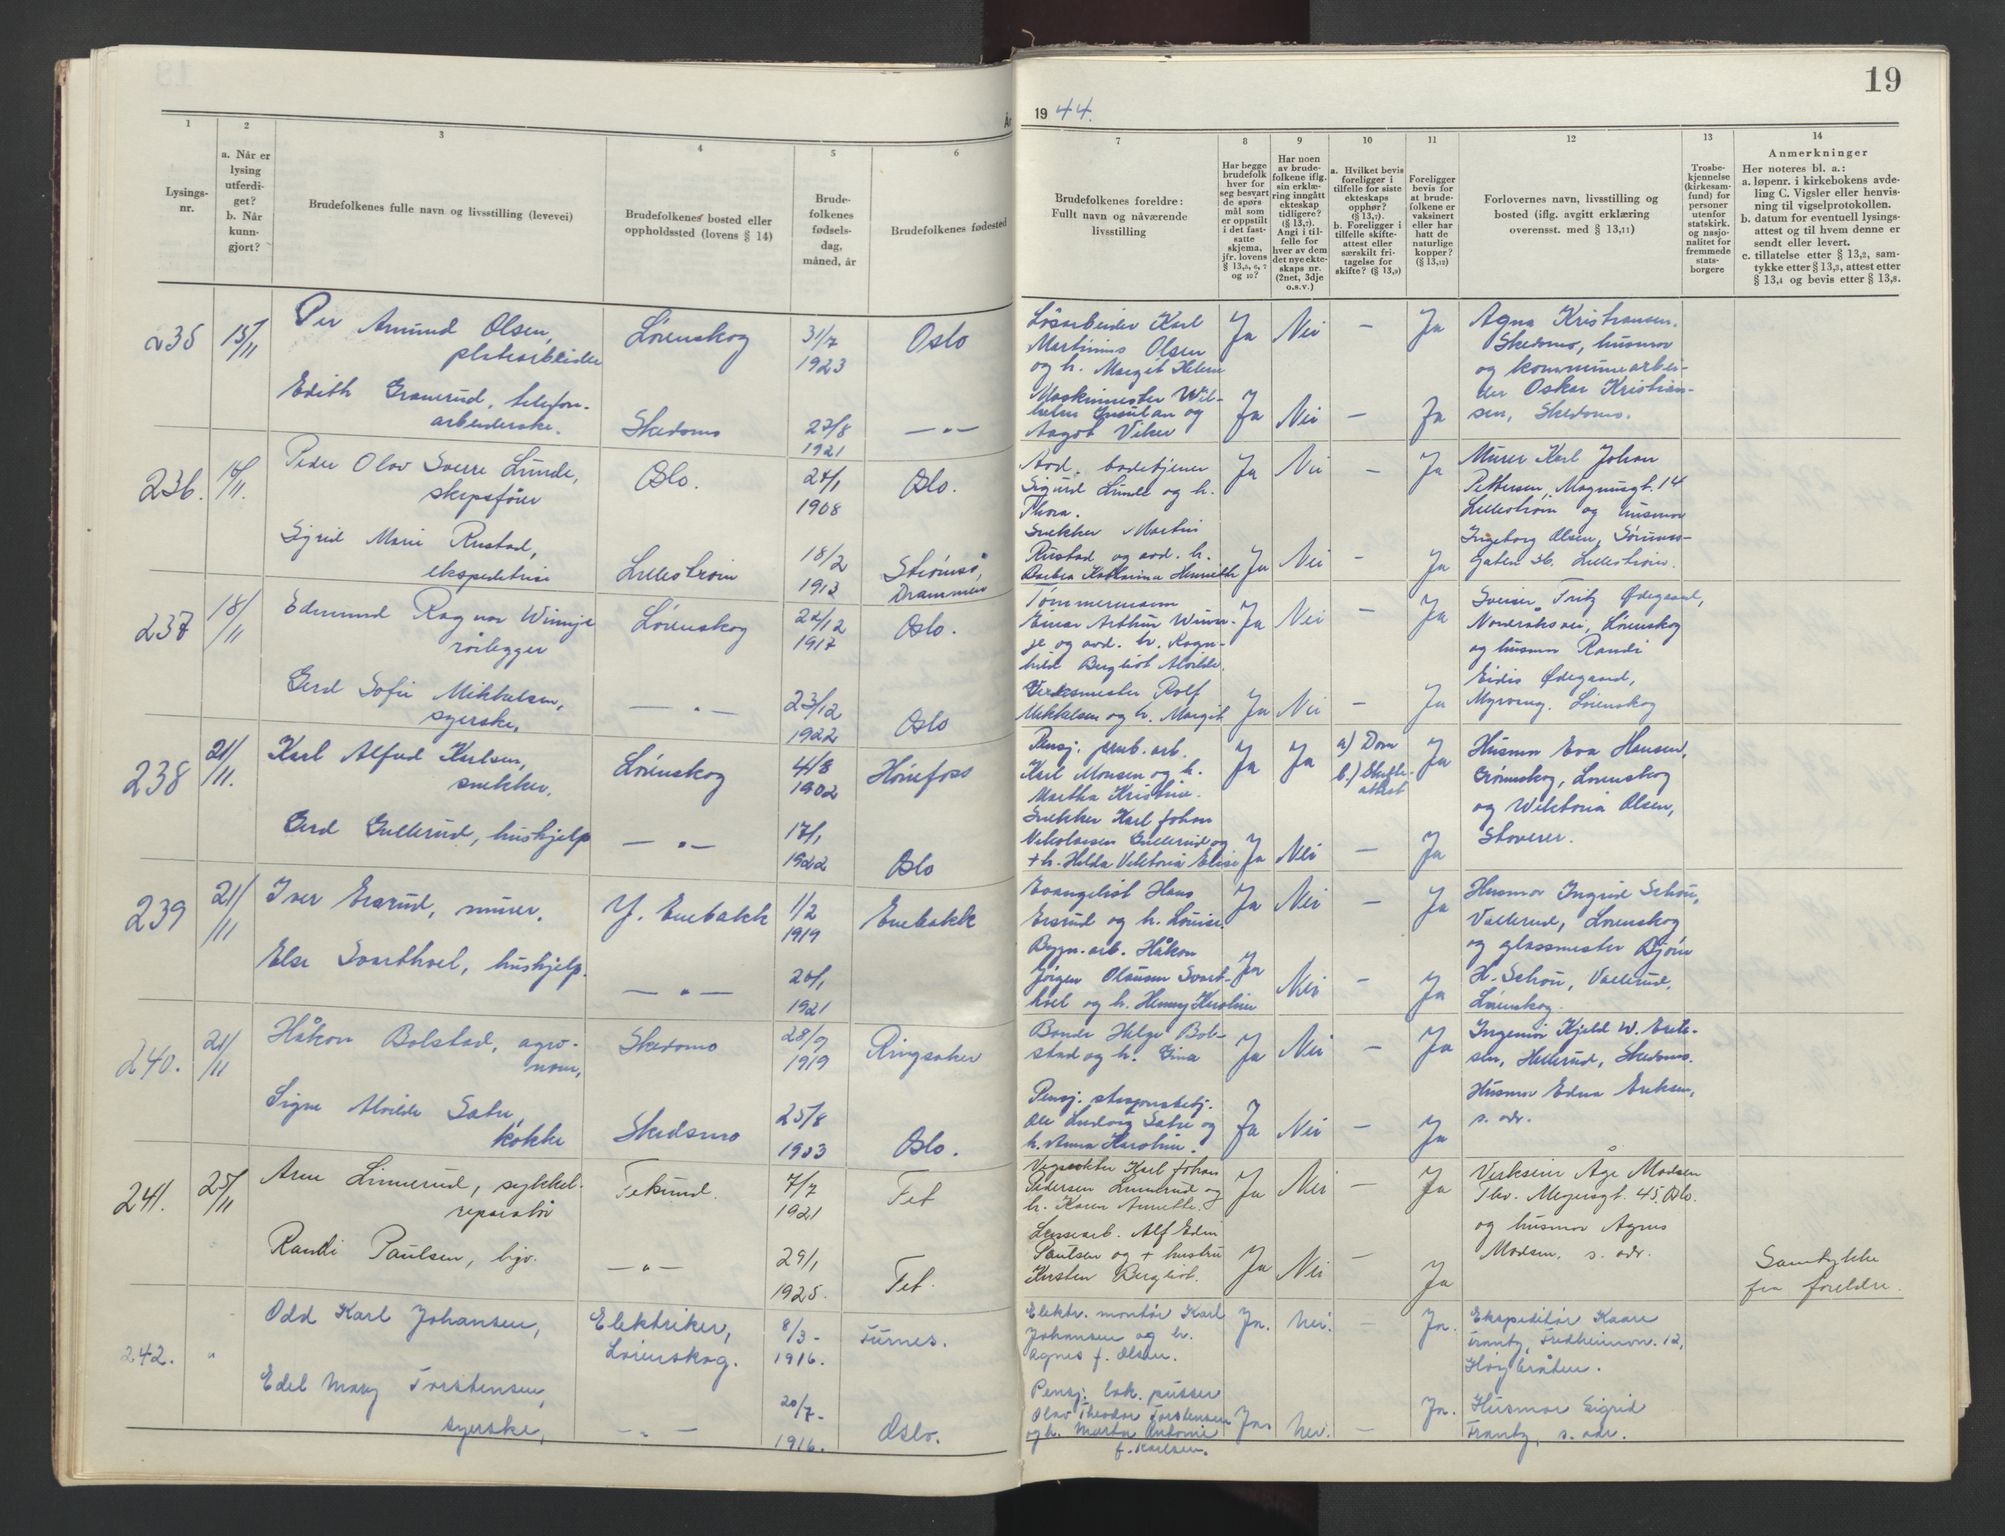 19
År
19 44.
1
2
3
4
5
6
7
8
9
10
11
12
13
14
Lysings-
nr.
a. Når er
lysing
utferdi-
get?
b. Når
kunn-
gjort?
Brudefolkenes fulle navn og livsstilling (levevei)
Brudefolkenes bosted eller
oppholdssted (lovens § 14)
Brude-
folkenes
fødsels-
dag,
måned, år
Brudefolkenes fødested
Brudefolkenes foreldre:
Fullt navn og nåværende
livsstilling
Har begge
brudefolk
hver for
seg besvart
de spørs-
mål som
er oppstilt
i det fast-
satte
skjema,
jfr. lovens
§ 13,5, 6, 7
og 10?
Har noen
av brude-
folkene iflg.
sin erklæ-
ring inngått
ekteskap
tidligere?
(§ 13,7).
Angi i til-
felle for
hver av dem
det nye ekte-
skaps nr.
(2net, 3dje
o.s.v.)
a. Hvilket bevis
foreligger i
tilfelle for siste
ekteskaps
opphør?
(§ 13,7).
b. Foreligger i
tilfelle skifte-
attest eller
særskilt fri-
tagelse for
skifte? (§ 13,9)
Foreligger
bevis for
at brude-
folkene er
vaksinert
eller har
hatt de
naturlige
kopper?
(§ 13,12)
Forlovernes navn, livsstilling og
bosted (iflg. avgitt erklæring
overensst. med § 13,11)
Trosbe-
kjennelse
(kirkesam-
fund) for
personer
utenfor
statskirk.
og nasjo-
nalitet for
fremmede
stats-
borgere
Anmerkninger
Her noteres bl. a.:
a. løpenr. i kirkebokens avde-
ling C. Vigsler eller henvis-
ning til vigselprotokollen.
b. datum for eventuell lysings-
attest og til hvem denne er
sendt eller levert.
c. tillatelse etter § 13,2, sam-
tykke etter § 13,3, attest etter
§ 13,4 og bevis etter § 13,8.
235
15/11
Per Amund Olsen,
platearbeider
Lørenskog
31/7
1923
Oslo
Løsarbeider Karl
Martinius Olsen
og h. Margit Helene
Ja
Nei
—
Ja
Agna Kristiansen,
Skedsmo, husmor
og kommunearbei-
der Oskar Kristian-
sen, Skedsmo.
Edith Granerud, telefon-
arbeiderske.
Skedsmo
27/8
1921
— " —
Maskinmester Wil-
helm Insulan og
Aagot Viker
Ja
Nei
—
Ja
236.
16/11.
Peder Olav Sverre Lunde,
skipsfører
Oslo.
24/1
1908
Oslo.
Avd. badebetjener
Sigurd Lunde og h.
Thora.
Ja
Nei
—
Ja
Murer Karl Johan
Pettersen, Magnusgt. 14
Lillestrøm og husmor
Ingeborg Olsen, Sørums-
gaten 36. Lillestrøm.
Sigrid Marie Rustad,
ekspeditrise
Lillestrøm
18/2
1913
Strømsø,
Drammen
Snekker Martin
Rustad og avd. h.
Barbra Katharina Henriette
Ja
Nei
—
Ja
237
18/11
Edmund Ragnar Winnje
rørlegger
Lørenskog
22/12
1917
Oslo.
Tømmermann
Einar Arthur Winn-
je og avd. h. Ragn-
hild Bergliot Alvilde.
Ja
Nei
—
Ja
Sverser Fritz Ødegaard,
Nordråksvei, Lørenskog
og husmor Randi
Eidis Ødegaard,
Myrveng, Lørenskog
Gerd Sofie Mikkelsen,
syerske,
— " —
23/12
1922
Oslo
Verksmester Rolf
Mikkelsen og h. Margit
Ja
Nei
—
Ja
238
21/11.
Karl Alfred Karlsen,
snekker.
Lørenskog
4/8
1902
Hønefoss
Pensj. jernb. arb.
Karl Monsen og h.
Martha Kristine.
Ja
Ja
a) Dom
b.) Skifte-
attest
Ja
Husmor Eva Hansen,
Grønnskog, Lørenskog
og Wiktoria Olsen,
Stoverer.
Gerd Gullerud, hushjelp
— " —
17/1
1922
Oslo
Snekker Karl Johan
Nikolaisen Gullerud og
+ h. Hilda Viktoria Elise
Ja
Nei
—
Ja
239
21/11
Iver Eisrud, murer.
Y. Enebakk
1/2
1919
Enebakk
Evangelist Hans
Eisrud og h. Louise.
Ja
Nei
—
Ja
Husmor Ingrid Schou,
Vallerud, Lørenskog
og glassmester Bjørn
H. Schou, Vallerud,
Lørenskog.
Else Svarthoel, hushjelp.
— " —
20/1
1921
Bygn. arb. Håkon
Jørgen Olausen Svart-
hoel og h. Henny Karoline
Ja
Nei
—
Ja
240.
21/11
Håkon Bolstad, agro-
nom,
Skedsmo
28/9
1919
Ringsaker
Bonde Helge Bol-
stad og h. Gina
Ja
Nei
—
Ja
Ingeniør Kjeld W. Erik-
sen, Hellerud, Skedsmo.
Husmor Edna Eriksen,
s. adr.
Signe Alvilde Sætre,
kokke
Skedsmo
25/8
1903
Oslo.
Pensj. stasjonsbetj.
Ole Ludvig Sætre og
h. Anna Karoline.
Ja
Nei
—
Ja
241.
25/11
Arne Linnerud, sykkel-
reparatør
Fetsund.
7/7
1921
Fet
Vegvokter Karl Johan
Pedersen Linnerud og
h. Karen Annette.
Ja
Nei
—
Ja
Verkseier Åge Madsen
Thv. Meyersgt. 45. Oslo.
og husmor Agnes
Madsen, s. adr.
Randi Paulsen, hjv.
— " —
29/1
1925.
Fet.
Lensearb. Alf Edin
Paulsen og + hustru
Kirsten Bergliot.
Ja
Nei
—
Ja
Samtykke
fra foreldre.
242.
"
Odd Karl Johansen,
Elektriker,
Lørenskog.
8/3-
1916.
Furnes.
Elektr. montør Karl
Johansen og h.
Agnes f. Olsen.
Ja.
Nei.
—
Ja.
Ekspeditør Kaare
Frantz, Fredheimvn. 12,
Høybråten.
Edel Mary Torstensen,
syerske,
— " —
20/7-
1916.
Oslo.
Pensj. lok. pusser
Olav Theodor Torstensen
og h. Marta Antonie
f. Karlsen.
Ja.
Nei.
—
Ja.
Husmor Sigrid
Frantz, s. adr.